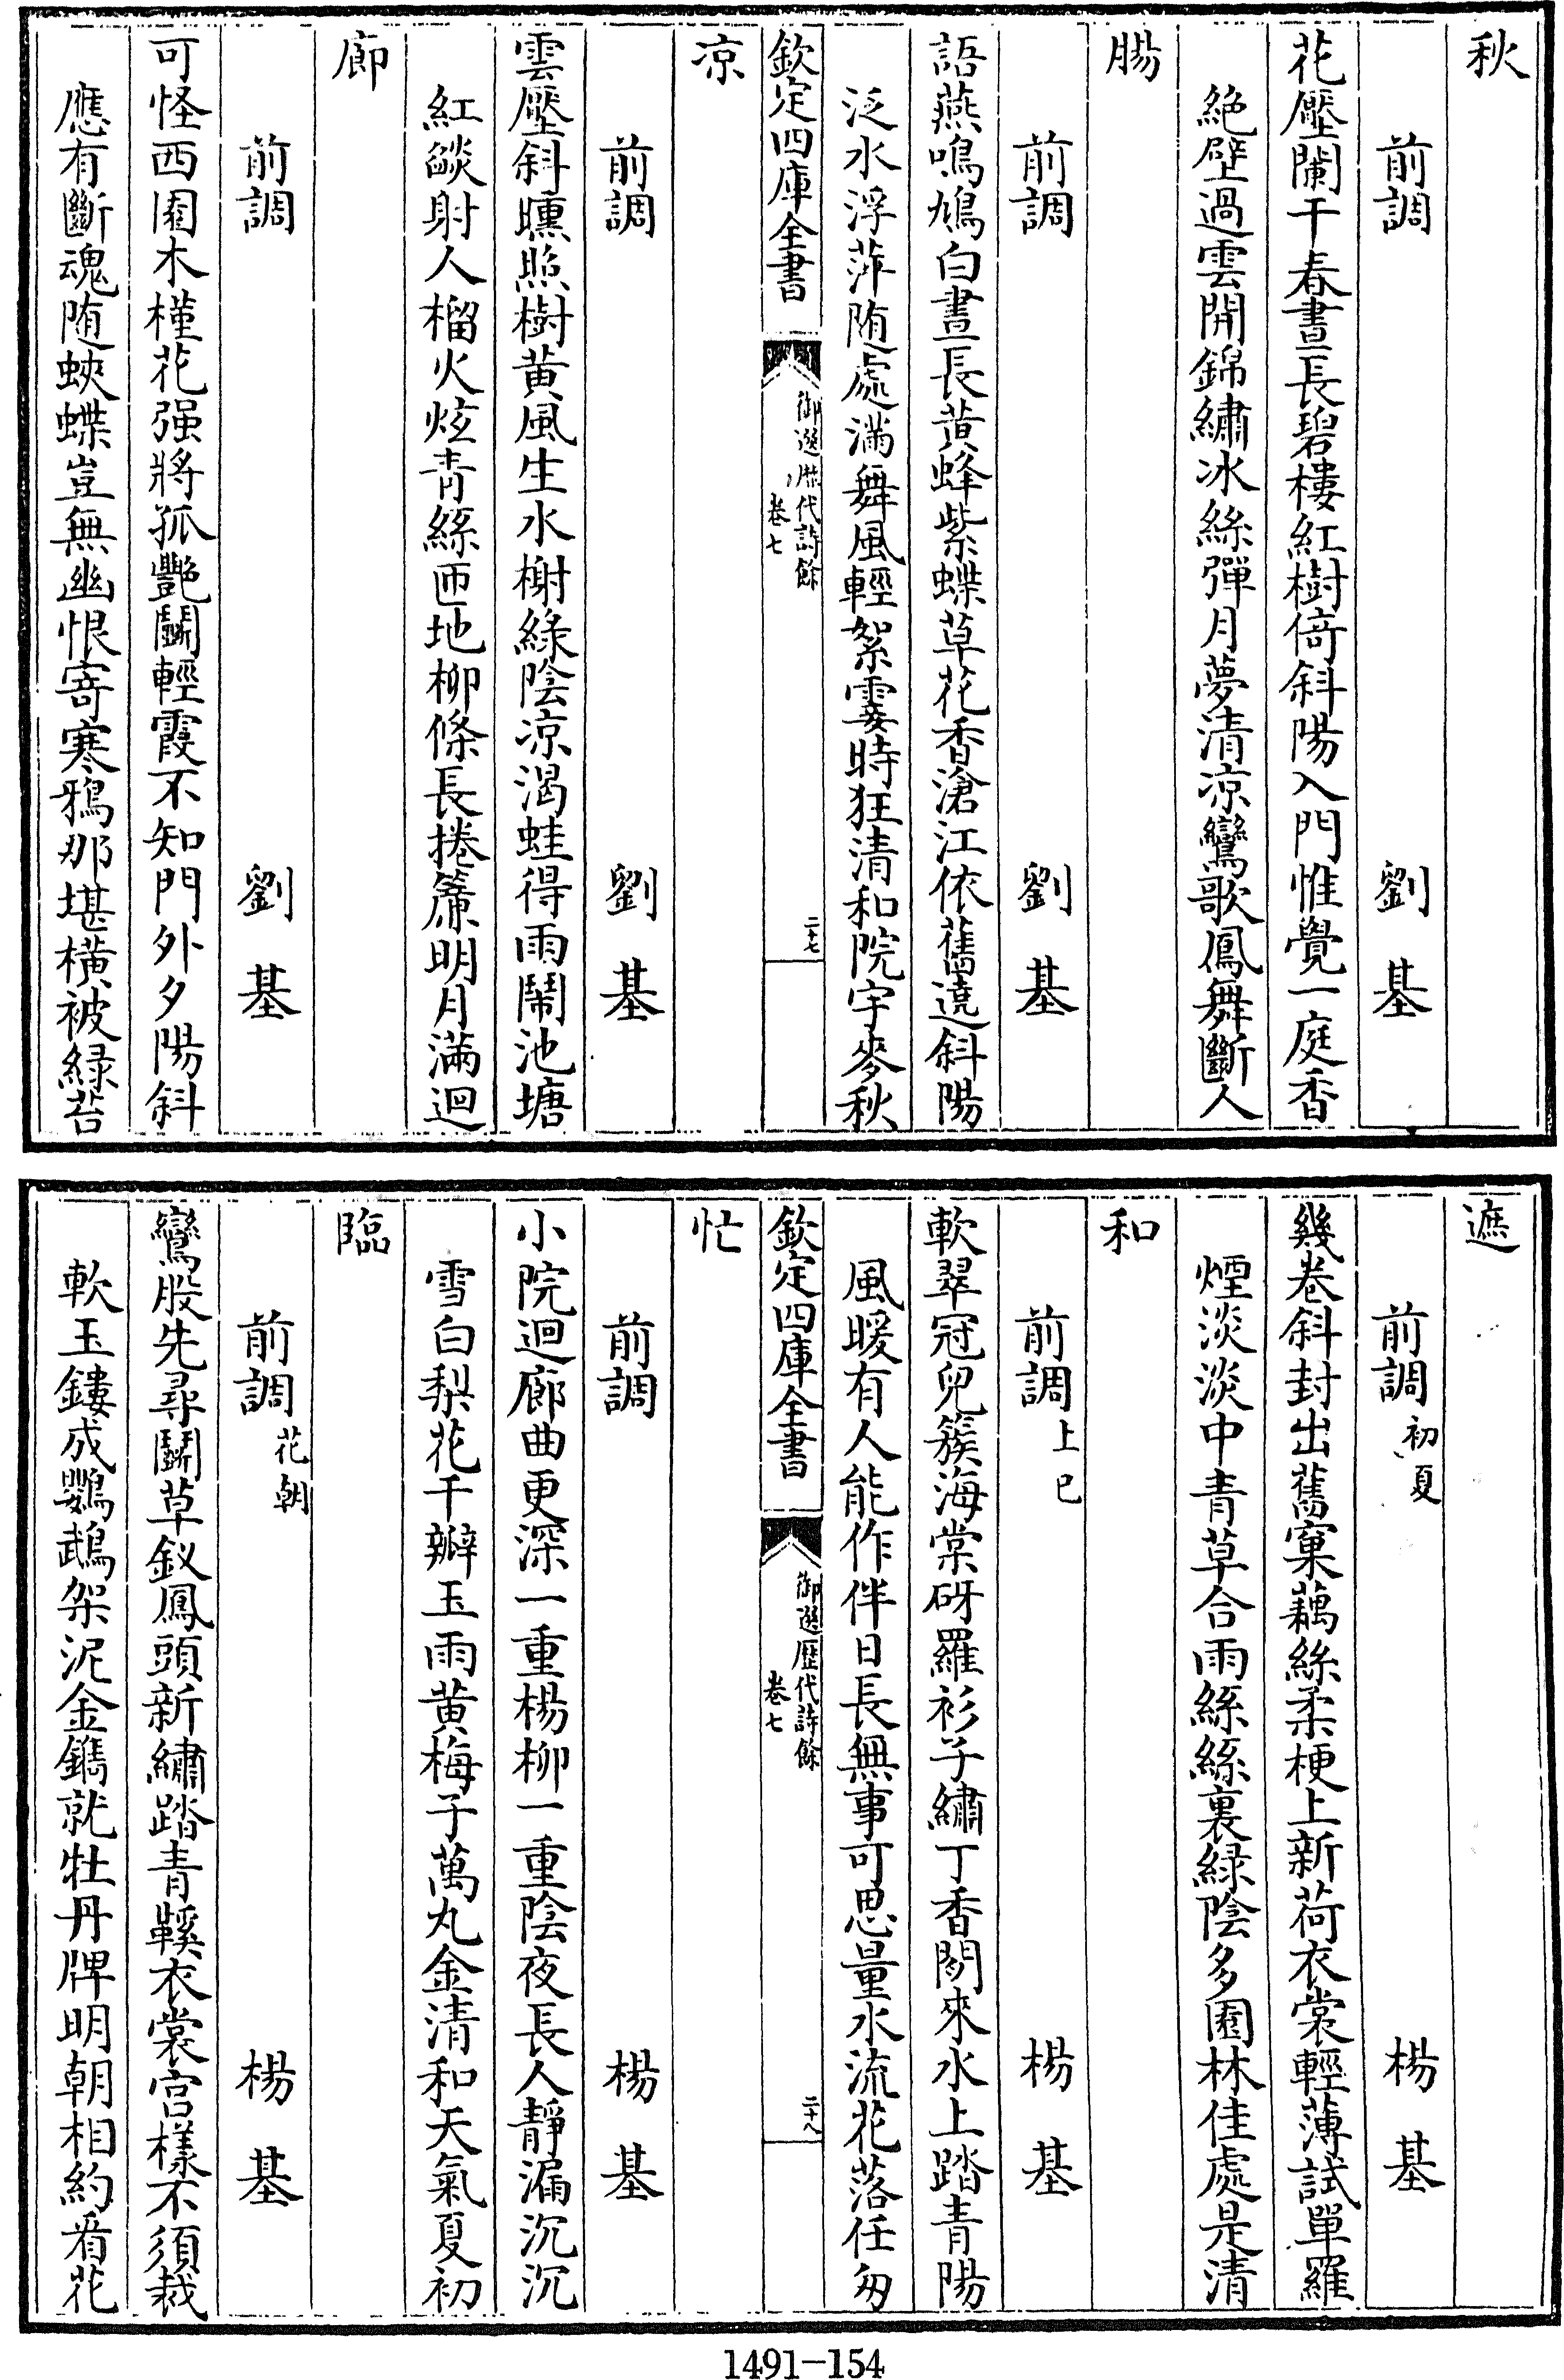 秋
前調 劉基
花壓闌干春晝長碧樓紅樹倚斜陽入門惟覺一庭香
絶壁過雲開錦繡冰絲彈月夢清凉鸞歌鳳舞斷人
腸
前調 劉基
語燕鳴鳩白晝長黄蜂紫蝶草花香滄江依舊遶斜陽
泛水浮萍随處滿舞風輕絮霎時狂清和院宇麥秋
欽定四庫全書
御選歴代詩餘
卷七
二十七
凉
前調 劉基
雲壓斜曛照樹黄風生水榭綠陰凉渴蛙得雨鬧池塘
紅燄射人榴火炫青絲匝地柳條長捲簾明月滿迴
廊
前調 劉基
可怪西園木槿花强將孤艷鬭輕霞不知門外夕陽斜
應有斷魂随蛺蝶豈無幽恨寄寒鴉那堪横被緑苔
遮
前調初夏 楊基
幾卷斜封出舊窠藕絲柔梗上新荷衣裳輕薄試單羅
煙淡淡中青草合雨絲絲裏緑陰多園林佳處是清
和
前調上巳 楊基
軟翠冠兒簇海棠砑羅衫子繡丁香閒來水上踏青陽
風暖有人能作伴日長無事可思量水流花落任匆
欽定四庫全書
御選歴代詩餘
卷七
二十八
忙
前調 楊基
小院迴廊曲更深一重楊柳一重陰夜長人靜漏沉沉
雪白梨花千瓣玉雨黄梅子萬丸金清和天氣夏初
臨
前調花朝 楊基
鸞股先尋鬭草釵鳳頭新繡踏青鞵衣裳宫樣不須裁
軟玉鏤成鸚鵡架泥金鐫就牡丹牌明朝相約看花
1491-154